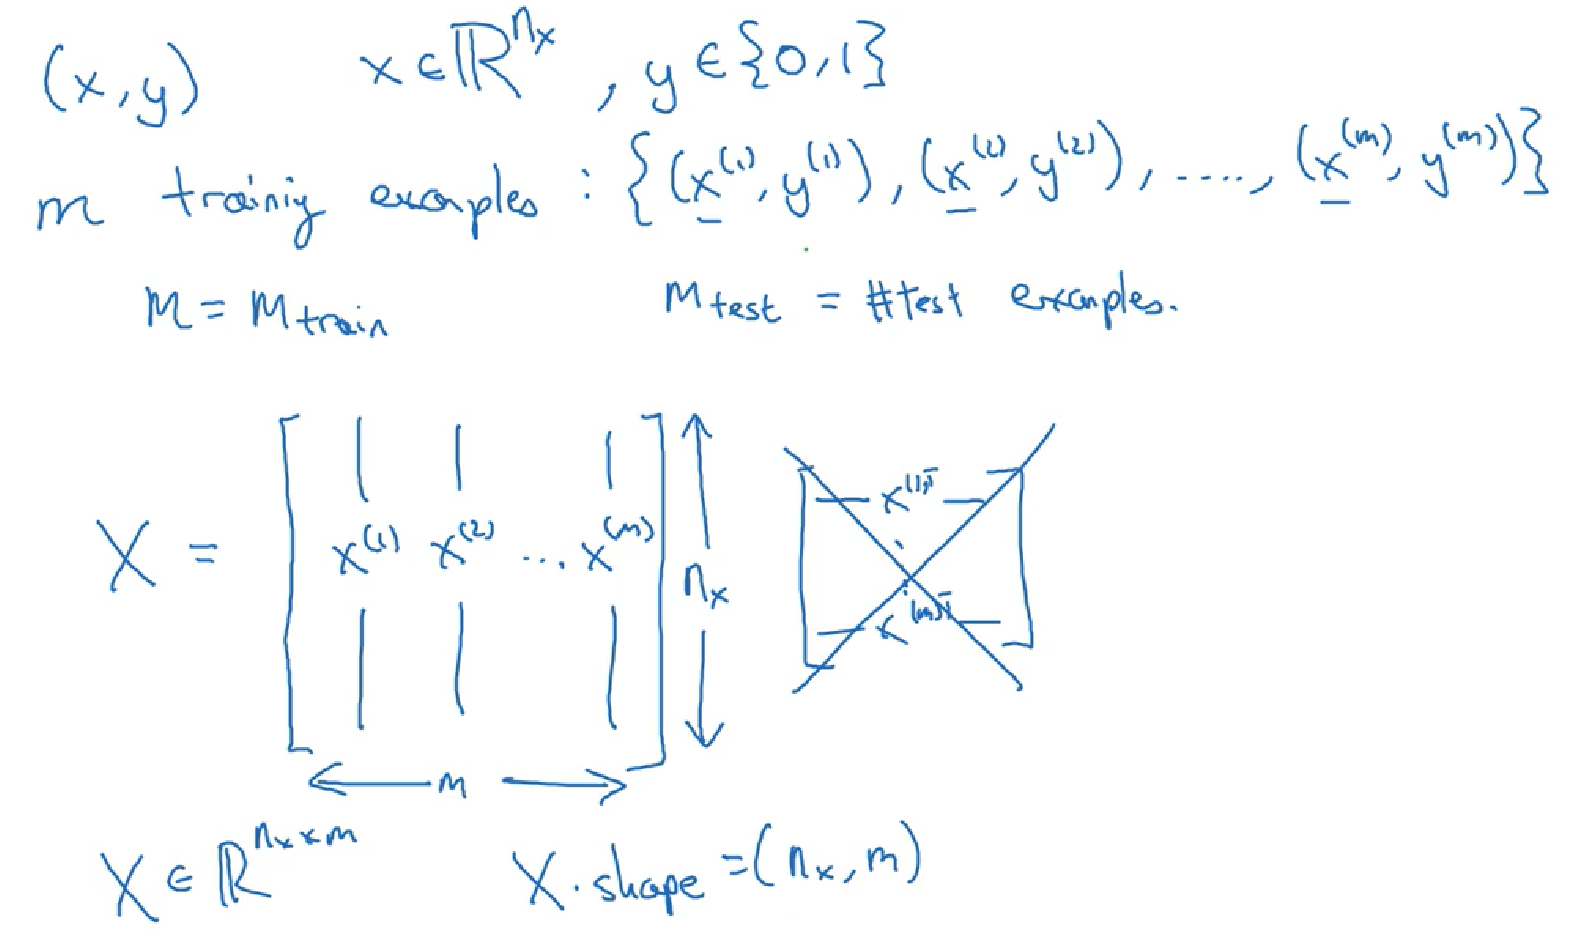 (x, y) x ∈ ℝ^{n_x}, y ∈ {0, 1}
m training examples : {(x^{(1)}, y^{(1)}), (x^{(2)}, y^{(2)}), ...., (x^{(m)}, y^{(m)})}
M = M_{train} M_{test} = #test examples.
X = [ x^{(1)} x^{(2)} ... x^{(m)} ] n_x
x^{(1)T}
x^{(m)T}
m
X ∈ ℝ^{n_x × m} X.shape = (n_x, m)